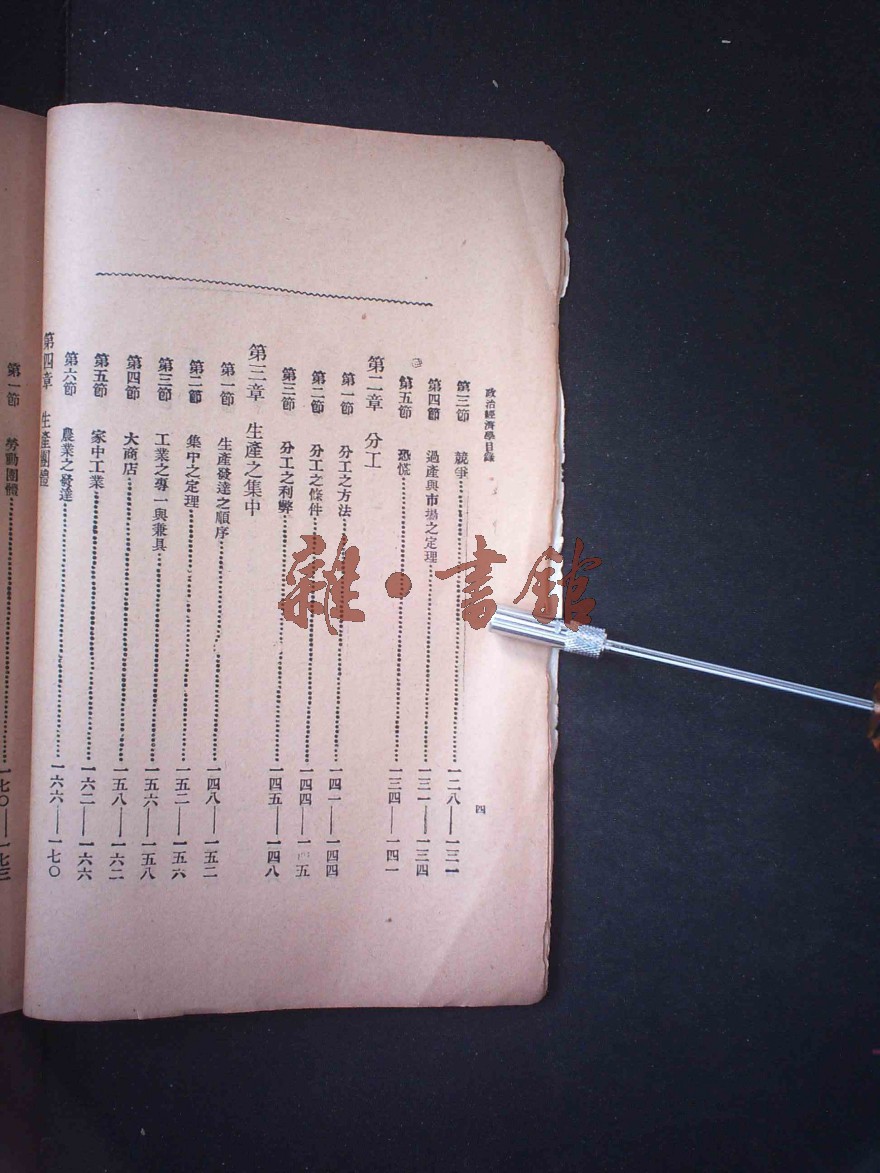 政治經濟學目錄
四
第三節 競爭 一二八——一三一
第四節 過產與市場之定理 一三一——一三四
第五節 恐慌 一三四——一四一
第二章 分工
第一節 分工之方法 一四一——一四四
第二節 分工之條件 一四四——一四五
第三節 分工之利弊 一四五——一四八
第三章 生產之集中
第一節 生產發達之順序 一四八——一五二
第二節 集中之定理 一五二——一五六
第三節 工業之專一與兼具 一五六——一五八
第四節 大商店 一五八——一六二
第五節 家中工業 一六二——一六六
第六節 農業之發達 一六六——一七〇
第四章 生產團體
第一節 勞動團體 一七〇——一七三
雜·書館